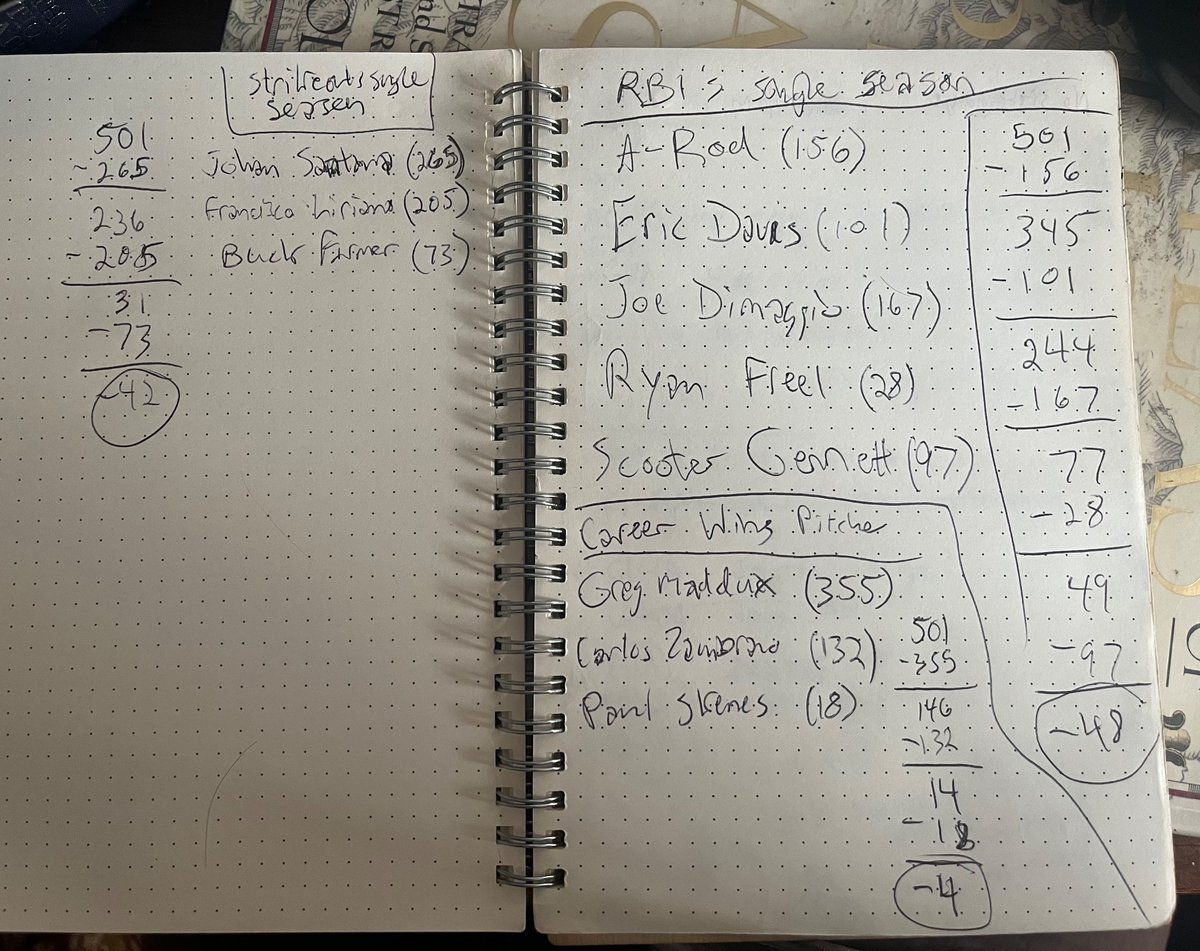 Strikeouts single
season
501
-265
Johan Santana (265)
236
Francisco Liriano (205)
-205
Buck Farmer (73)
31
-73
-42
RBI's single season
A-Rod (156)
Eric Davis (101)
Joe Dimaggio (167)
Ryan Freel (28)
Scooter Gennett (97)
501
-156
345
-101
244
-167
77
-28
49
-97
-48
Career Wins Pitcher
Greg Maddux (355)
Carlos Zambrano (132)
Paul Skenes (18)
501
-355
146
-132
14
-18
-4